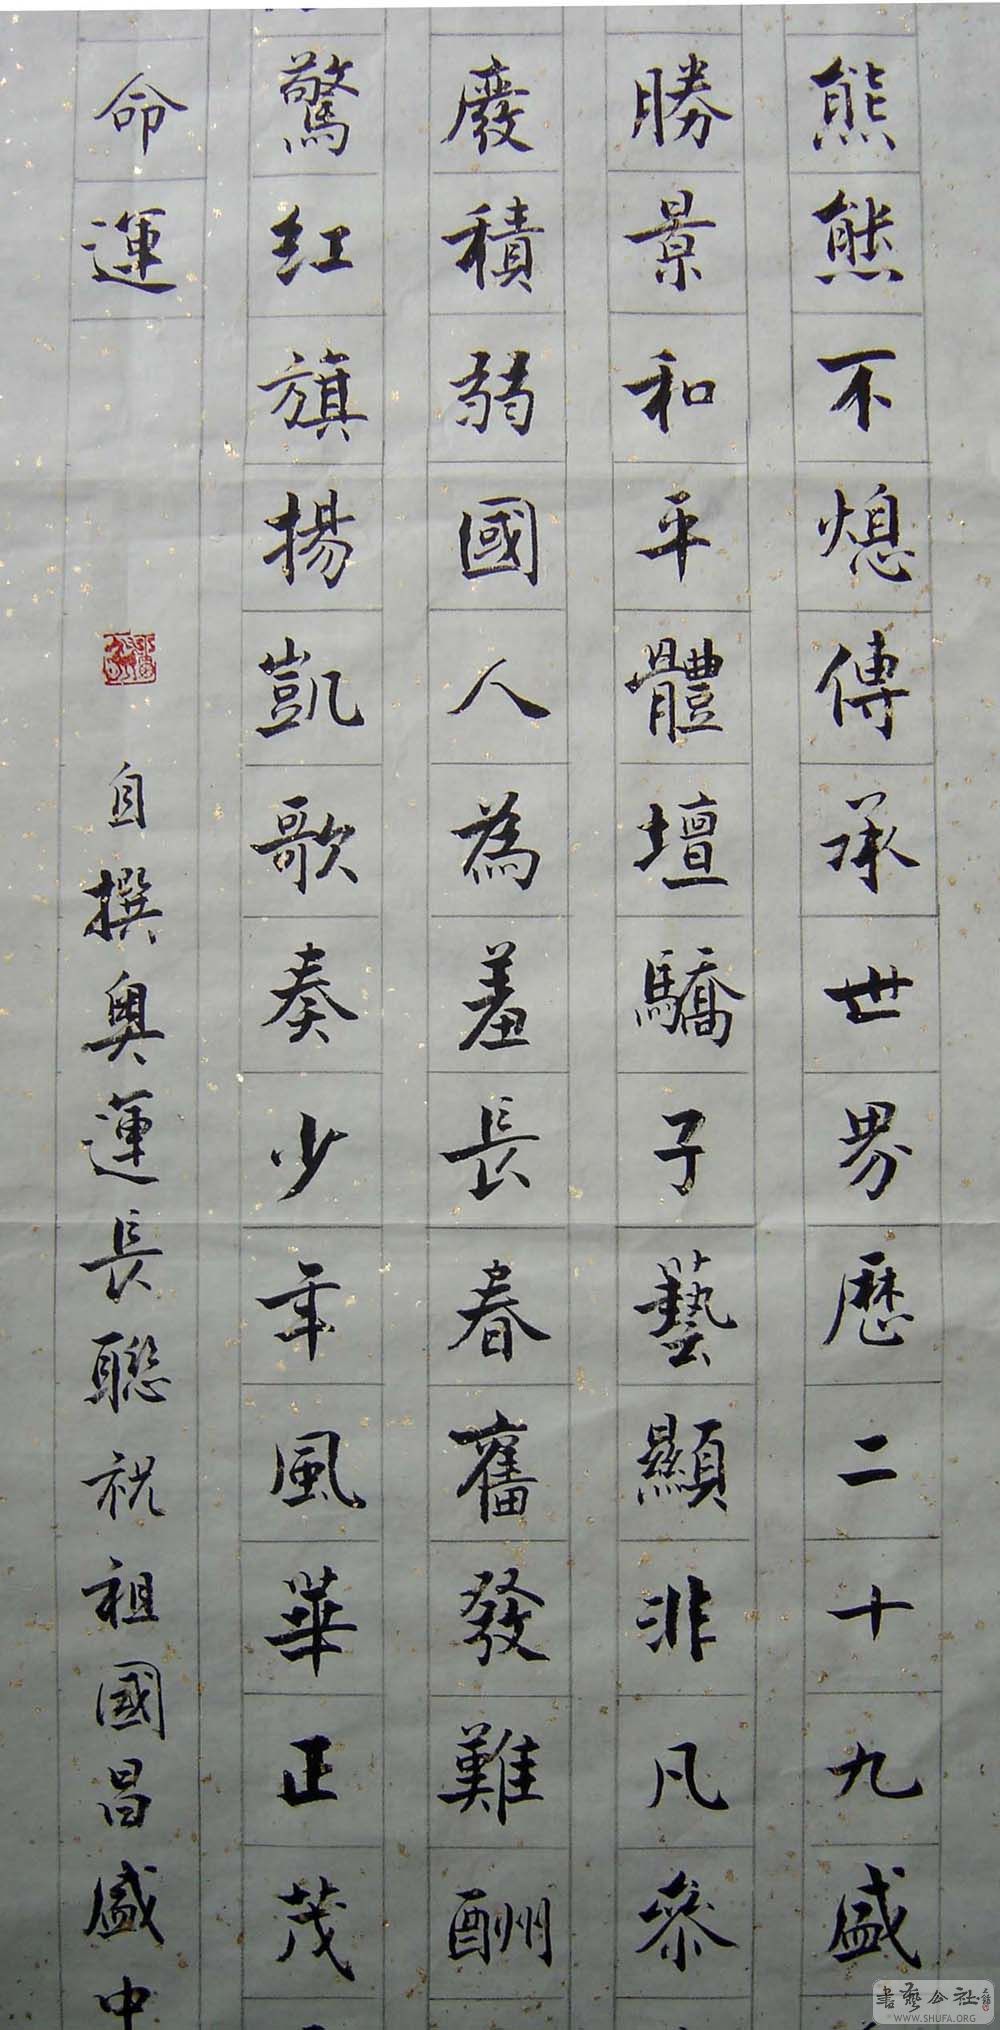 熊熊不熄傳承世界歷二十九盛
勝景和平體壇驕子藝顯非凡參
廢積弱國人為羞長春舊發難酬
驚红旗揚凱歌奏少年風華正茂
命運
自撰奧運長聯祝祖國昌盛中
書藝公社
WWW.SHUFA.ORG